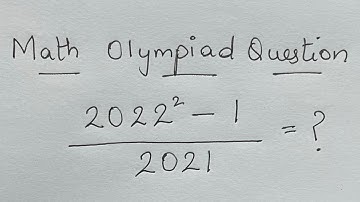 Math Olympiad Question
2022² - 1
2021
= ?